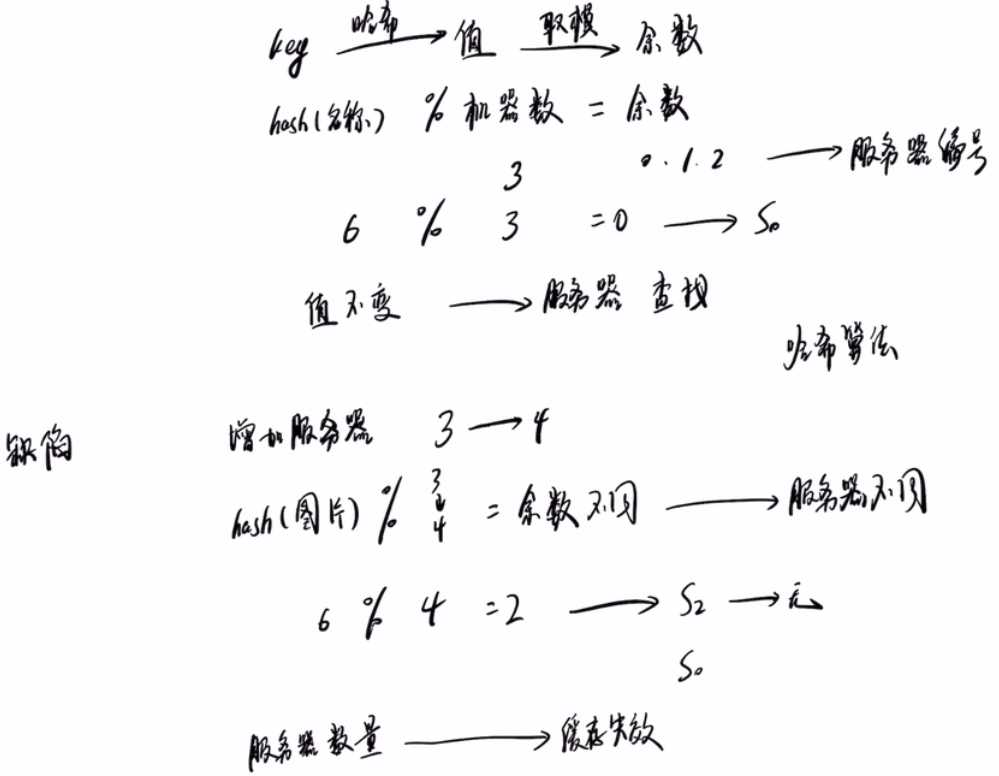 key 哈希→ 值 取模→ 余数
hash(名称) % 机器数 = 余数
3 0.1.2 → 服务器编号
6 % 3 =0 → S0
值不变 → 服务器 查找
哈希算法
缺陷 增加服务器 3→4
hash(图片) % 3↓4 = 余数不同 → 服务器不同
6 % 4 =2 → S2 → 无
S0
服务器数量 → 缓存失效